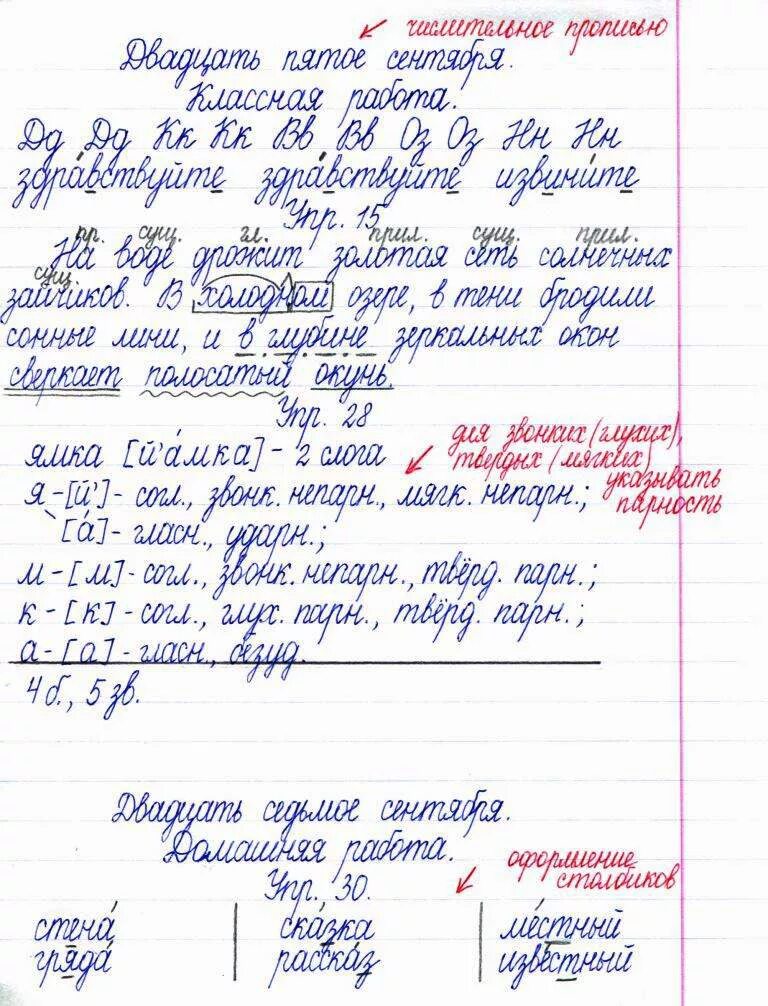 числительное прописью
Двадцать пятое сентября.
Классная работа.
Дд Дд Кк Кк Вв Вв Оз Оз Нн Нн
здра́вствуйте здра́вствуйте извини́те
Упр. 15
пр. сущ. гл. прил. сущ. прил.
На воде дрожит золотая сеть солнечных
сущ.
зайчиков. В холодном озере, в тени бродили
сонные лини, и в глубине зеркальных окон
сверкает полосатый окунь.
Упр. 28
для звонких (глухих),
твёрдых (мягких)
указывать
парность
ямка [й'а́мка] - 2 слога
я - [й'] - согл., звонк. непарн., мягк. непарн.;
[а́] - гласн., ударн.;
м - [м] - согл., звонк. непарн., твёрд. парн.;
к - [к] - согл., глух. парн., твёрд. парн.;
а - [а] - гласн., безуд.
4 б., 5 зв.
Двадцать седьмое сентября.
Домашняя работа.
Упр. 30.
оформление
столбиков
стена́ ска́зка ме́стный
гряда́ расска́з изве́стный